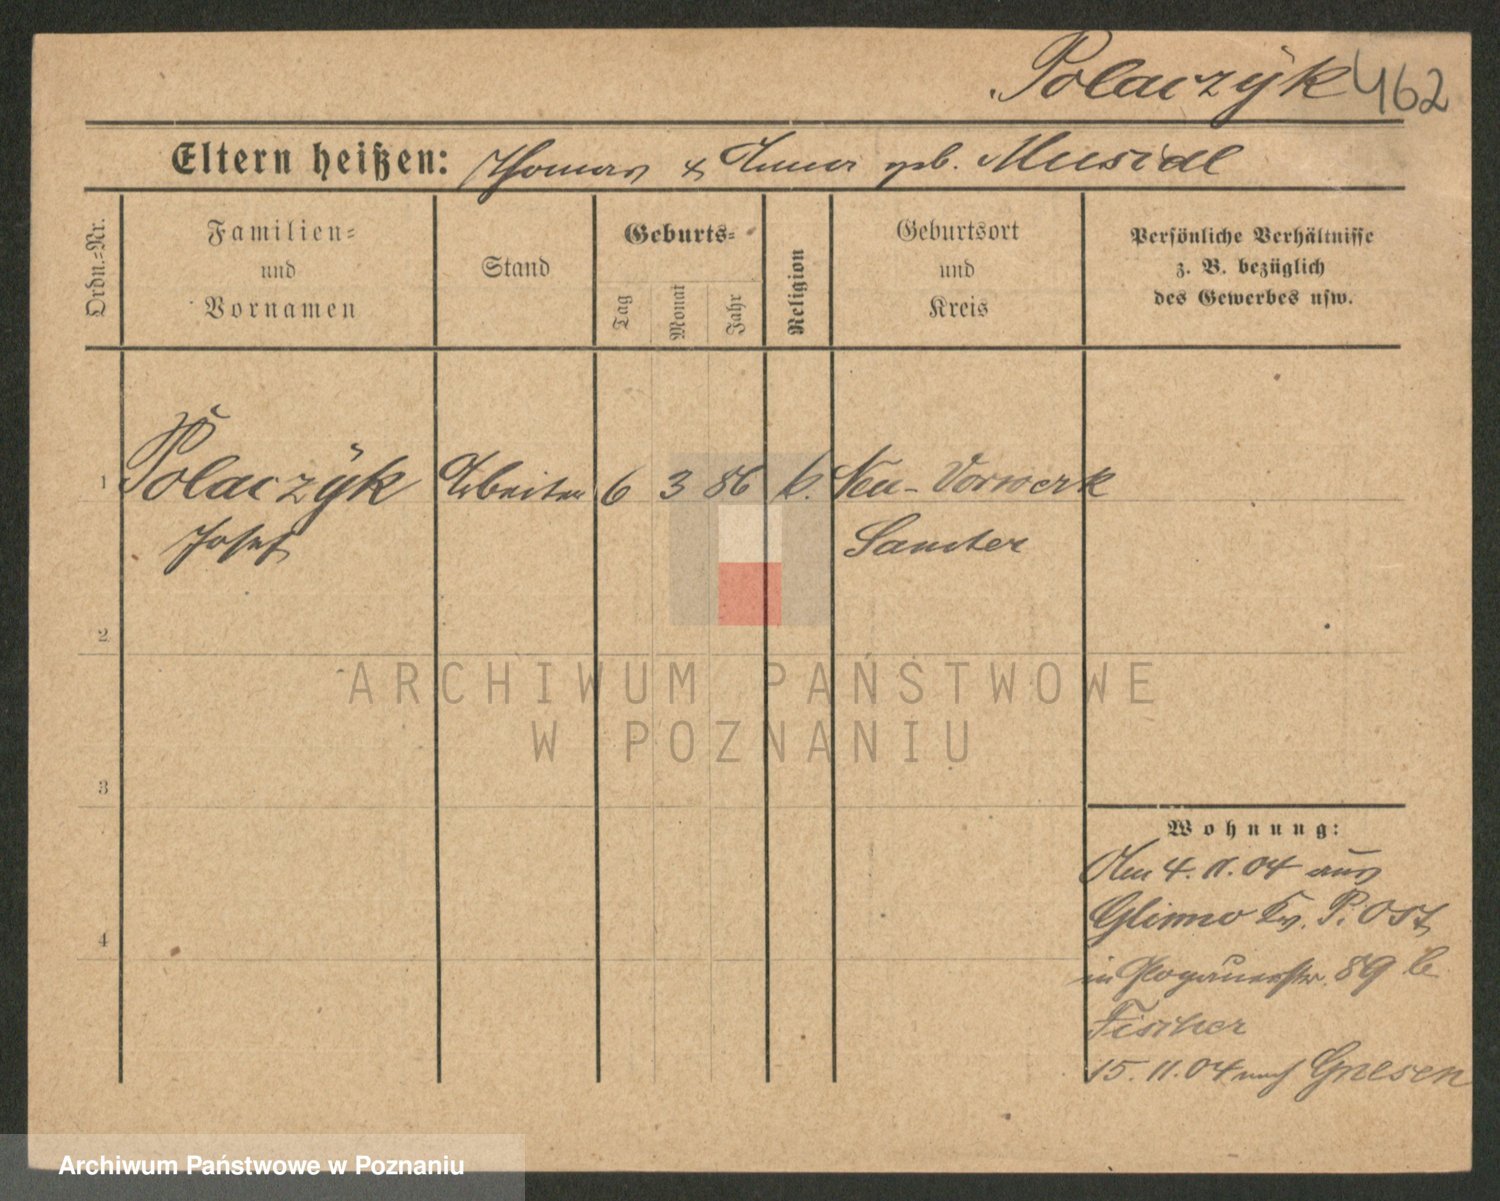 Polaczÿk 462
Eltern heißen: Thomas & Anna geb. Musial
Ordn.=Nr.
Familien=
und
Vornamen
Stand
Geburts=
Tag
Monat
Jahr
Religion
Geburtsort
und
Kreis
Persönliche Verhältnisse
z. B. bezüglich
des Gewerbes usw.
1 Polaczÿk Arbeiter 6 3 86 k. Neu-Vorwerk
Josef Samter
2
3
4
Wohnung:
Am 4.11.04 aus
Glinno Kr. P. Ost
in Glogauerstr. 89 b
Fischer
15.11.04 nach Gnesen
ARCHIWUM PAŃSTWOWE
W POZNANIU
Archiwum Państwowe w Poznaniu